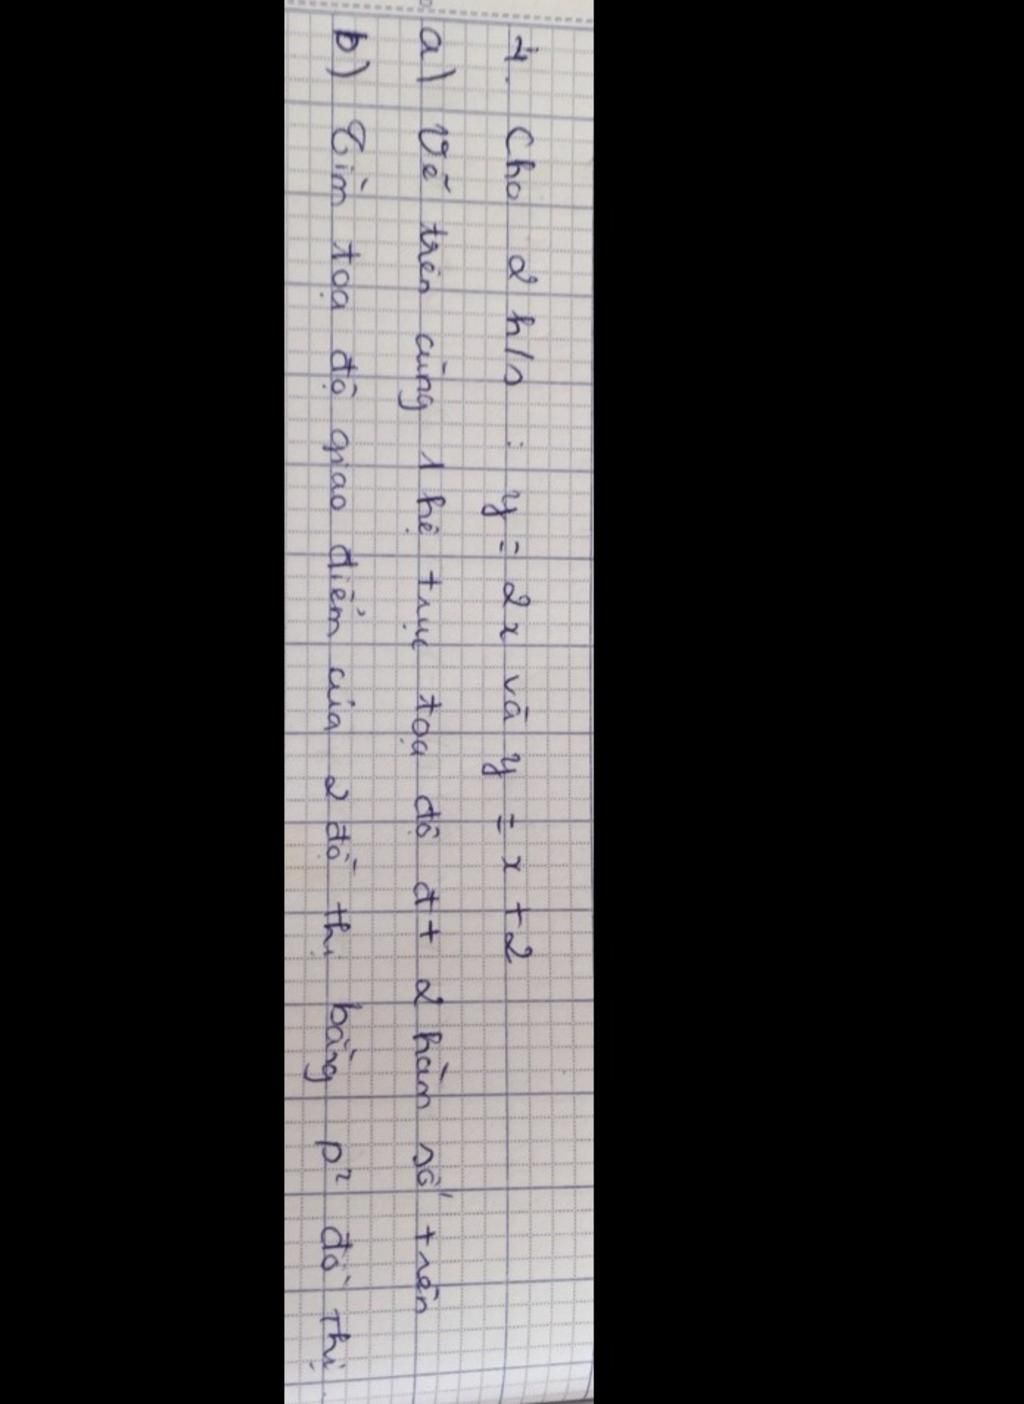 4. Cho 2 h/s : y = 2x và y = x + 2
a) Vẽ trên cùng 1 hệ trục tọa độ đt 2 hàm số trên
b) Tìm tọa độ giao điểm của 2 đồ thị bằng p² đồ thị.